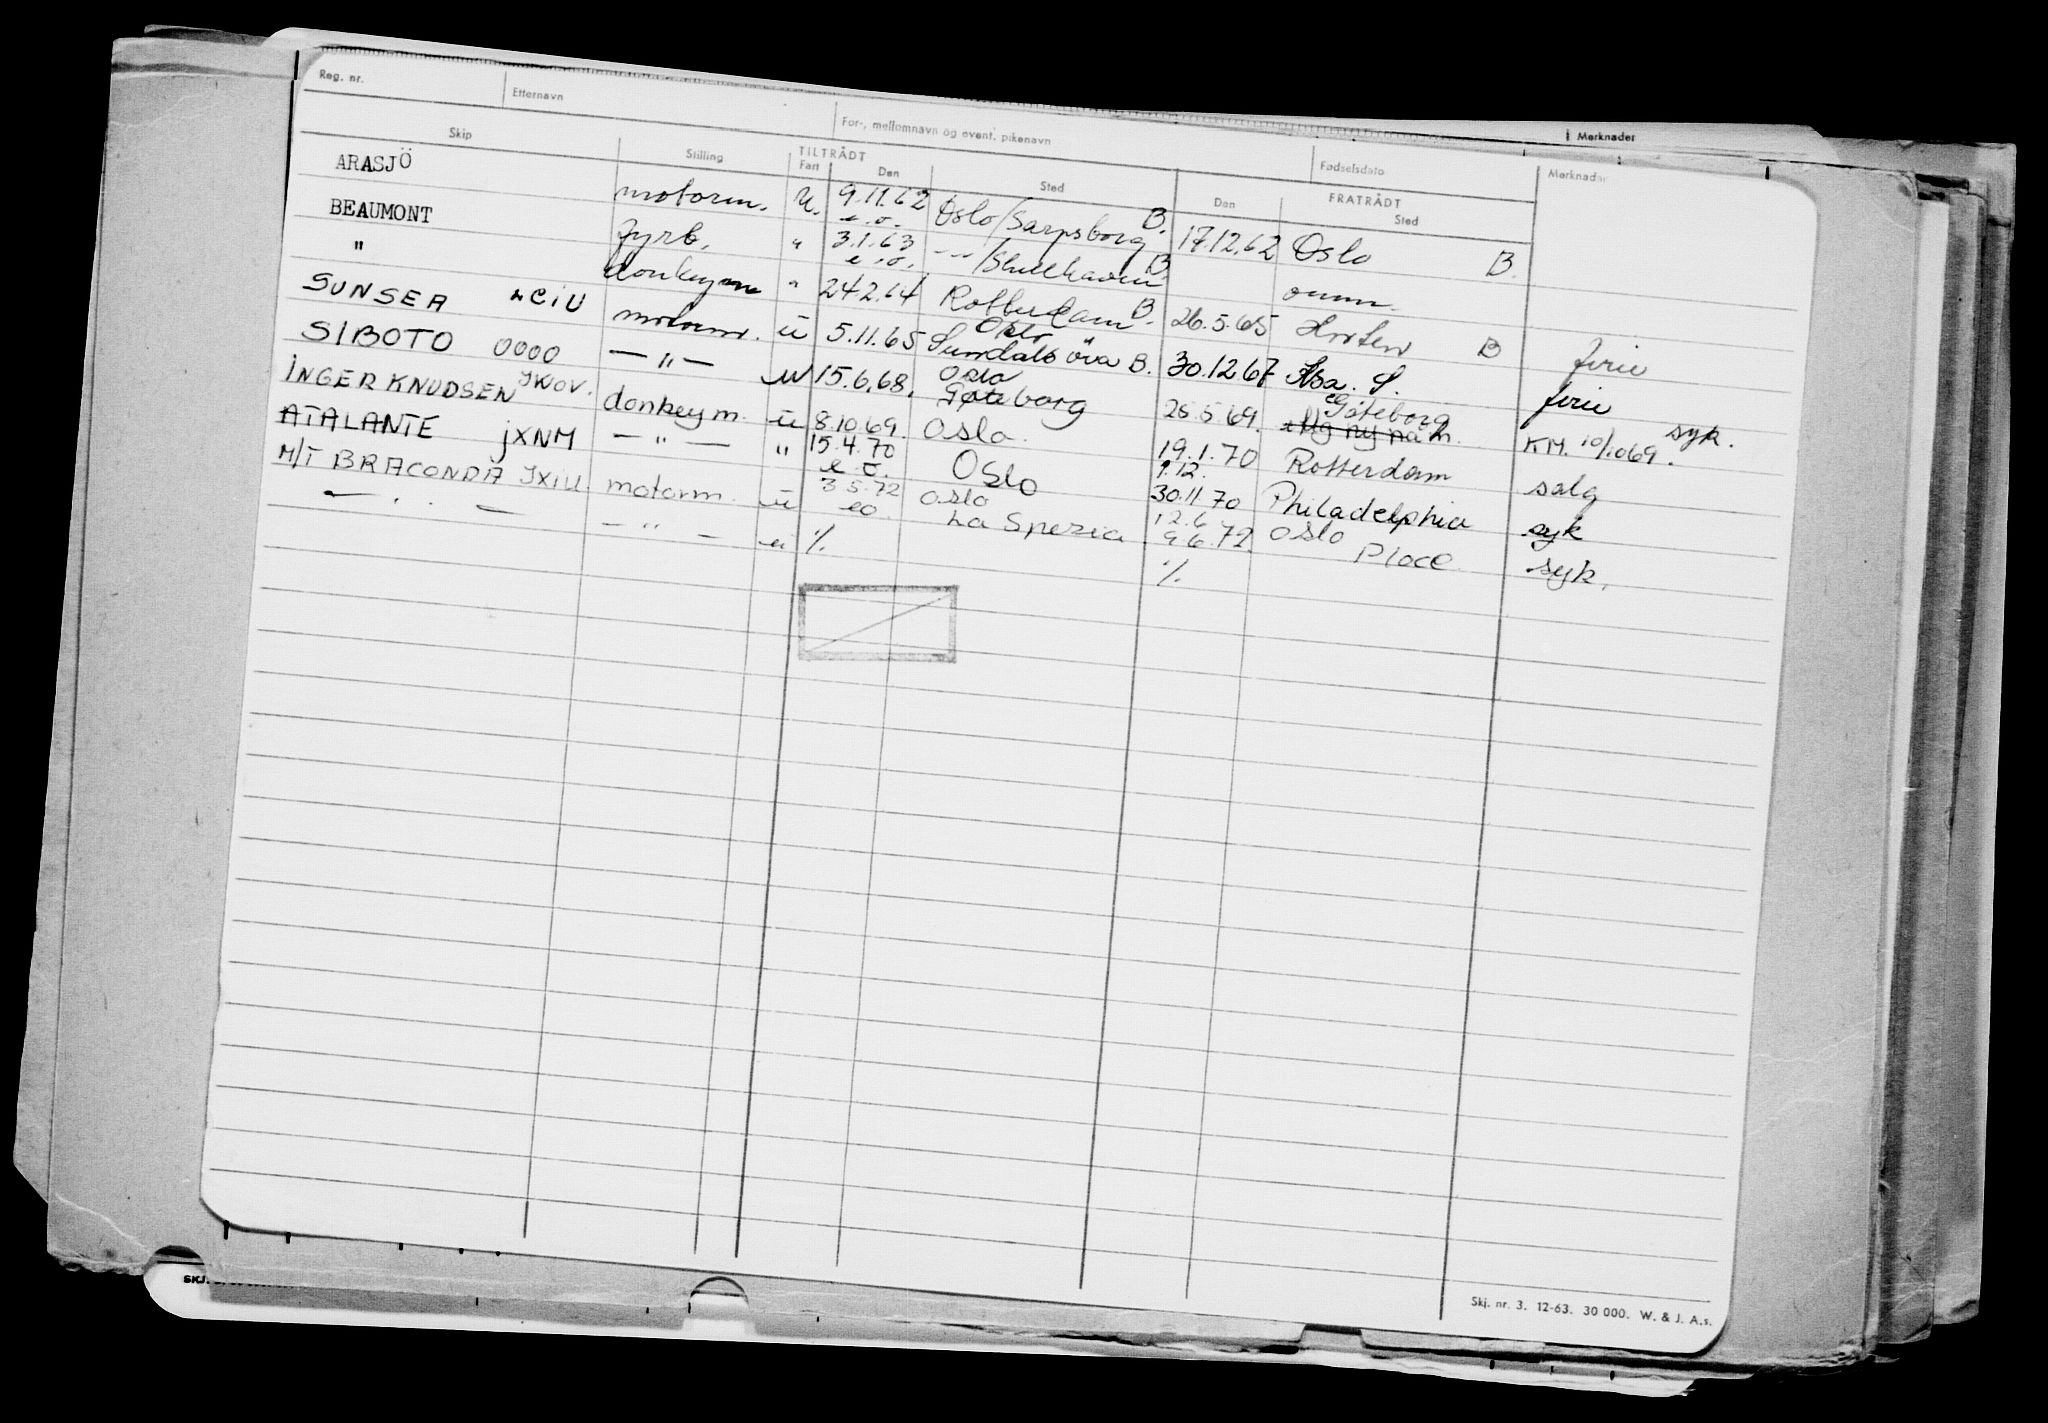 Reg. nr. Etternavn For-, mellomnavn og event. pikenavn Fødselsdato Merknader
Skip Stilling TILTRÅDT Fart Den Sted FRATRÅDT Den Sted Merknader
ARASJÖ motorm. U. 9.11.62 e.o. Oslo/Sarpsborg B. 17.12.62 Oslo B.
BEAUMONT fyrb. " 3.1.63 e.o. -"-/ B. omm.
" donkeym " 24.2.64 Rotterdam B. 26.5.65 Horten B ferie
SUNSEA motorm. u 5.11.65 Oslo Sundals öra B. 30.12.67 S. ferie
SIBOTO 0000 — " — u 15.6.68. Oslo Gøteborg 25.5.69. Göteborg syk.
INGER KNUDSEN JWOV. donkeym. u 8.10.69. Oslo. 19.1.70 Rotterdam KM. 10/1069. salg
ATALANTE jXNM — " — " 15.4.70 e.o. Oslo 1.12. 30.11.70 Philadelphia syk
M/T BRACONDA JXIU. motorm. u 3.5.72 eo. Oslo La Spezia 12.6 9.6.72. Oslo Place syk.
— " — — " — u % %
Skj. nr. 3. 12-63. 30 000. W. & J. A.s.
SKJ.